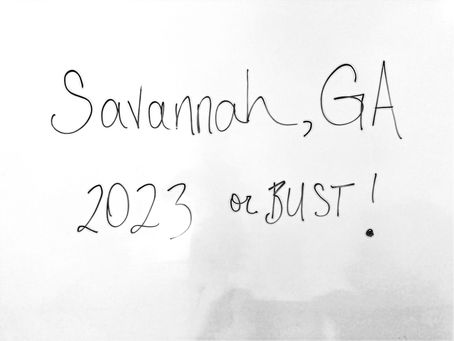 Savannah, GA
2023 or BUST!